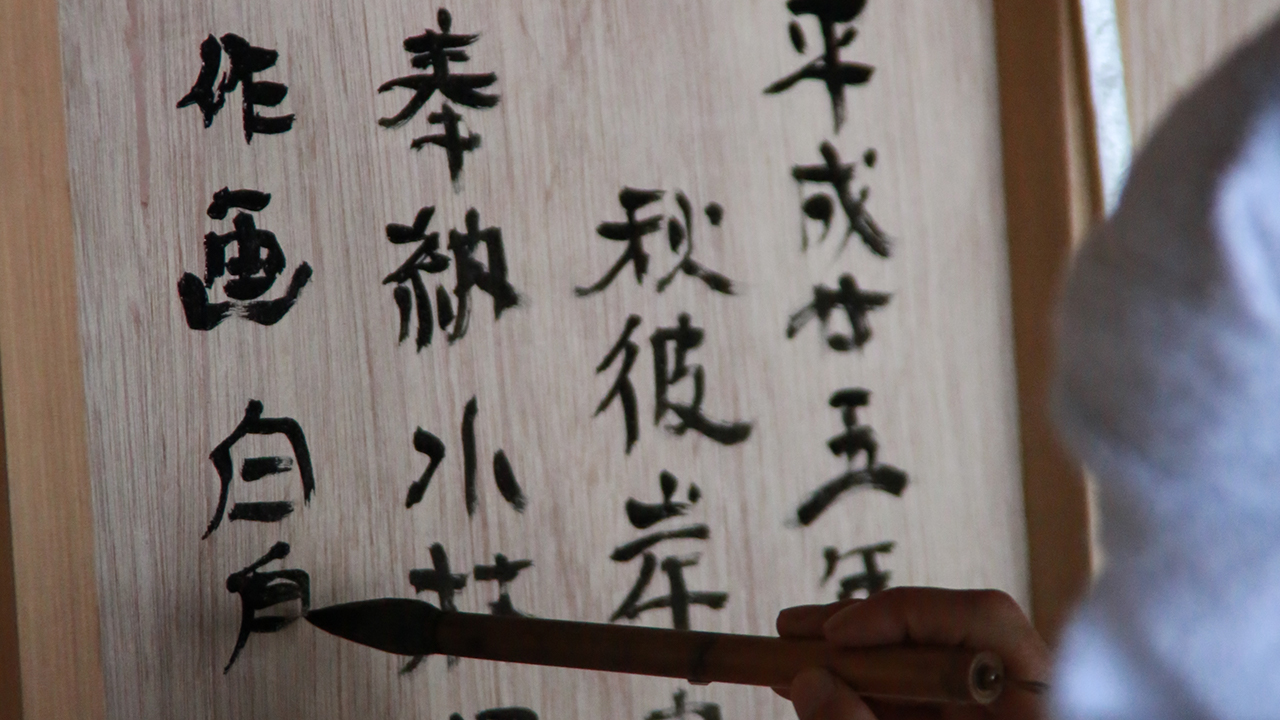 平成廿五年
秋彼岸
奉納小
作画白